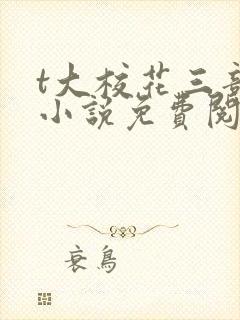 t大校花三部
小說免費閱
衰鳥